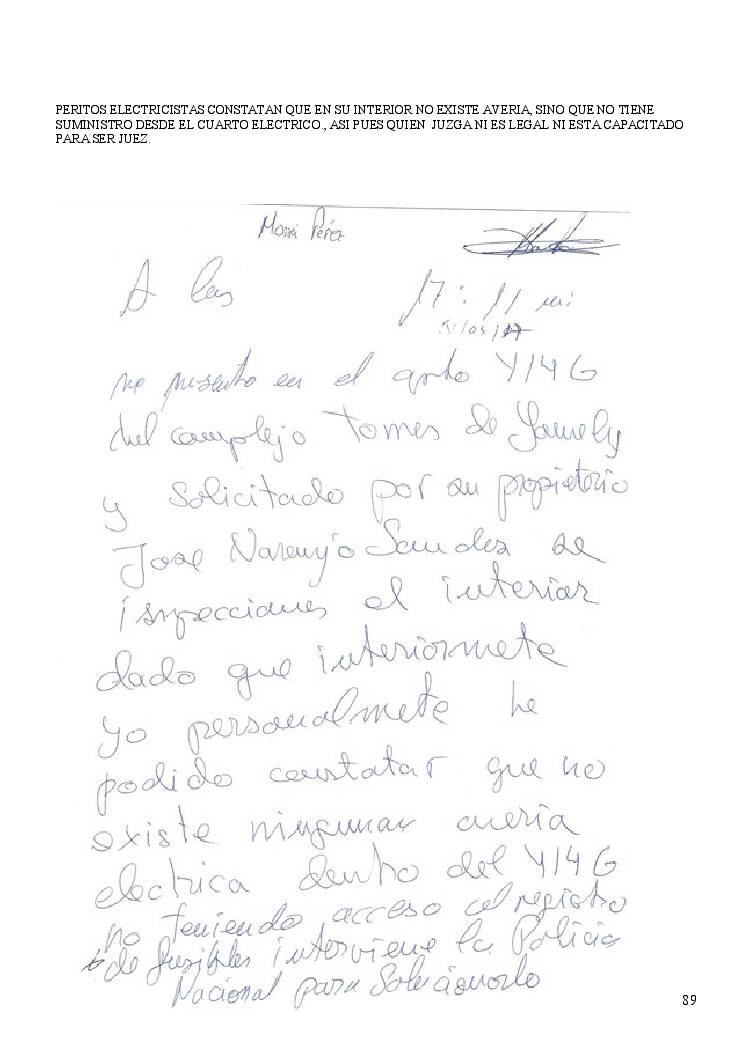 PERITOS ELECTRICISTAS CONSTATAN QUE EN SU INTERIOR NO EXISTE AVERIA, SINO QUE NO TIENE
SUMINISTRO DESDE EL CUARTO ELECTRICO., ASI PUES QUIEN JUZGA NI ES LEGAL NI ESTA CAPACITADO
PARA SER JUEZ.
Pérez
A las 17:11
me presento en el apto Y14G
del complejo Torres de Yomely
y solicitado por su propietario
Jose Naranjo Sanchez se
inspecciones el interior
dado que interiormete
yo personalmete he
podido constatar que no
existe ningunar averia
electrica dentro del Y14G
no teniendo acceso al registro
de fusibles interviene la Policia
Nacional para Solucionarlo
89